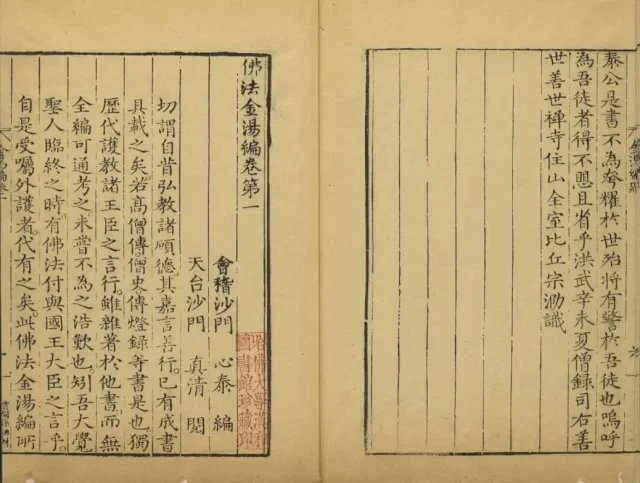 泰公是書不為夸耀於世殆將有警於吾徒也嗚呼
為吾徒者得不思且省乎洪武辛未夏僧錄司右善
世善世禪寺住山全室比丘宗泐識
佛法金湯編卷第一
會稽沙門 心泰 編
天台沙門 真清 閱
切謂自昔弘教諸碩德其嘉言善行。已有成書
具載之矣。若高僧傳。僧史。傳燈錄等書是也。獨
歷代護教諸王臣之言行。雖雜著於他書。而無
全編可通考之。未嘗不為之浩歎也。矧吾大覺
聖人臨終之時。有佛法付與國王大臣之言乎。
自是受囑外護者。代有之矣。此佛法金湯編所
哈佛大學漢和
圖書館珍藏印